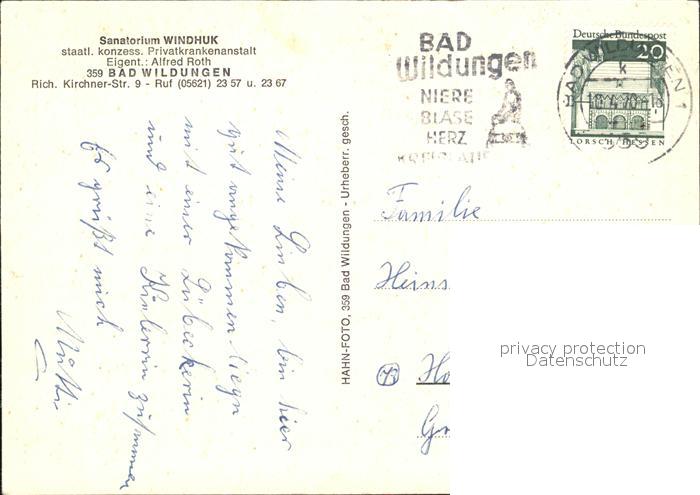 Sanatorium WINDHUK
staatl. konzess. Privatkrankenanstalt
Eigent.: Alfred Roth
359 BAD WILDUNGEN
Rich. Kirchner-Str. 9 - Ruf (05621) 23 57 u. 23 67
Meine Lieben, bin hier
gut angekommen liege
mit einer Lübeckerin
und eine Kielerin zusammen
Es grüßt
Mutti
HAHN-FOTO, 359 Bad Wildungen - Urheberr. gesch.
BAD
Wildungen
NIERE
BLASE
HERZ
KREISLAUF
Deutsche Bundespost
20
LORSCH/HESSEN
BAD WILDUNGEN 1
Familie
Heins
privacy protection
Datenschutz